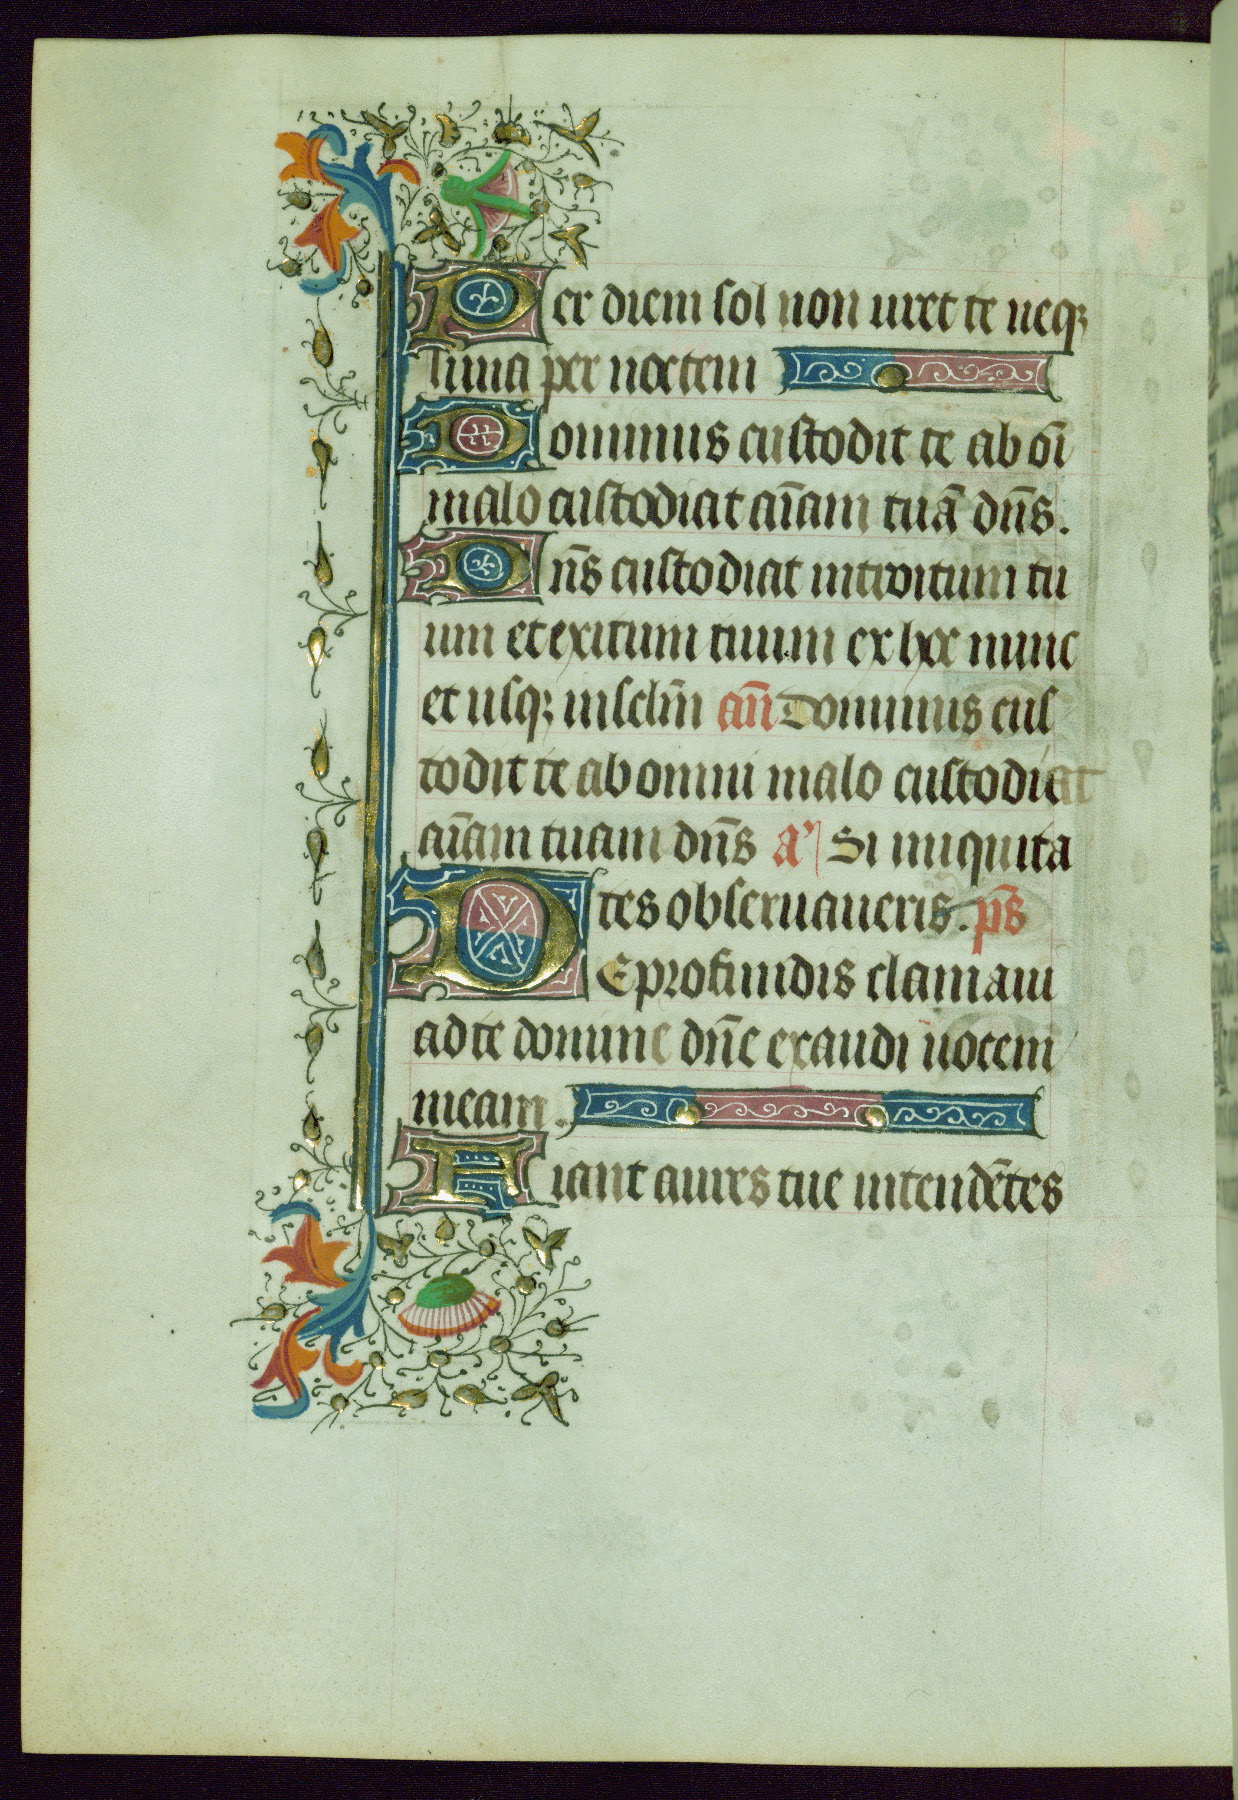 Per diem sol non uret te neqꝫ
luna per noctem
Dominus custodit te ab oı̄
malo custodiat aı̄am tuā dn̄s.
Dn̄s custodiat introitum tu
um et exitum tuum ex hoc nunc
et usqꝫ in sclm̄ an̄ Dominus cus
todit te ab omni malo custodiat
aı̄am tuam dn̄s a’ Si iniquita
tes obseruaueris. ps̄
De profundis clamaui
ad te domine dn̄e exaudi uocem
meam.
Fiant aures tue intendētes